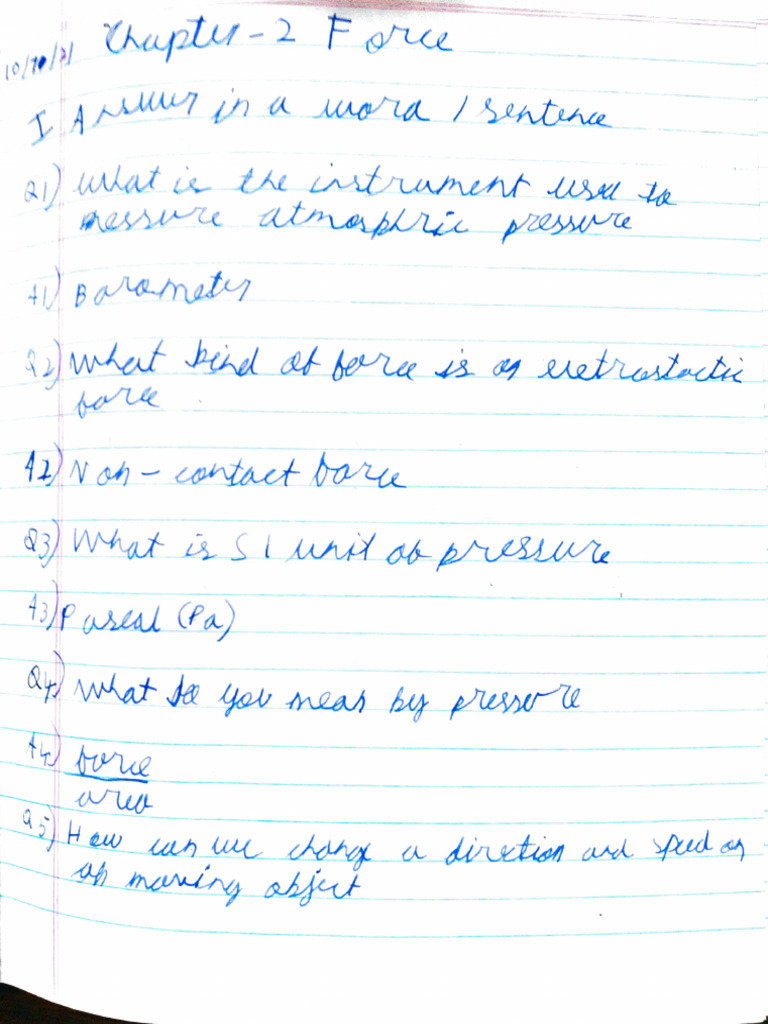 Chapter - 2 Force
10/10/21
I Answer in a word / sentence
Q1) What is the instrument used to
messure atmosphric pressure
A1) Barometer
Q2) What kind of force is an eletrostactic
force
A2) Non - contact force
Q3) What is SI unit of pressure
A3) Pascal (Pa)
Q4) What do you mean by pressure
A4) force
area
Q5) How can we change a direction and speed of
an moving object